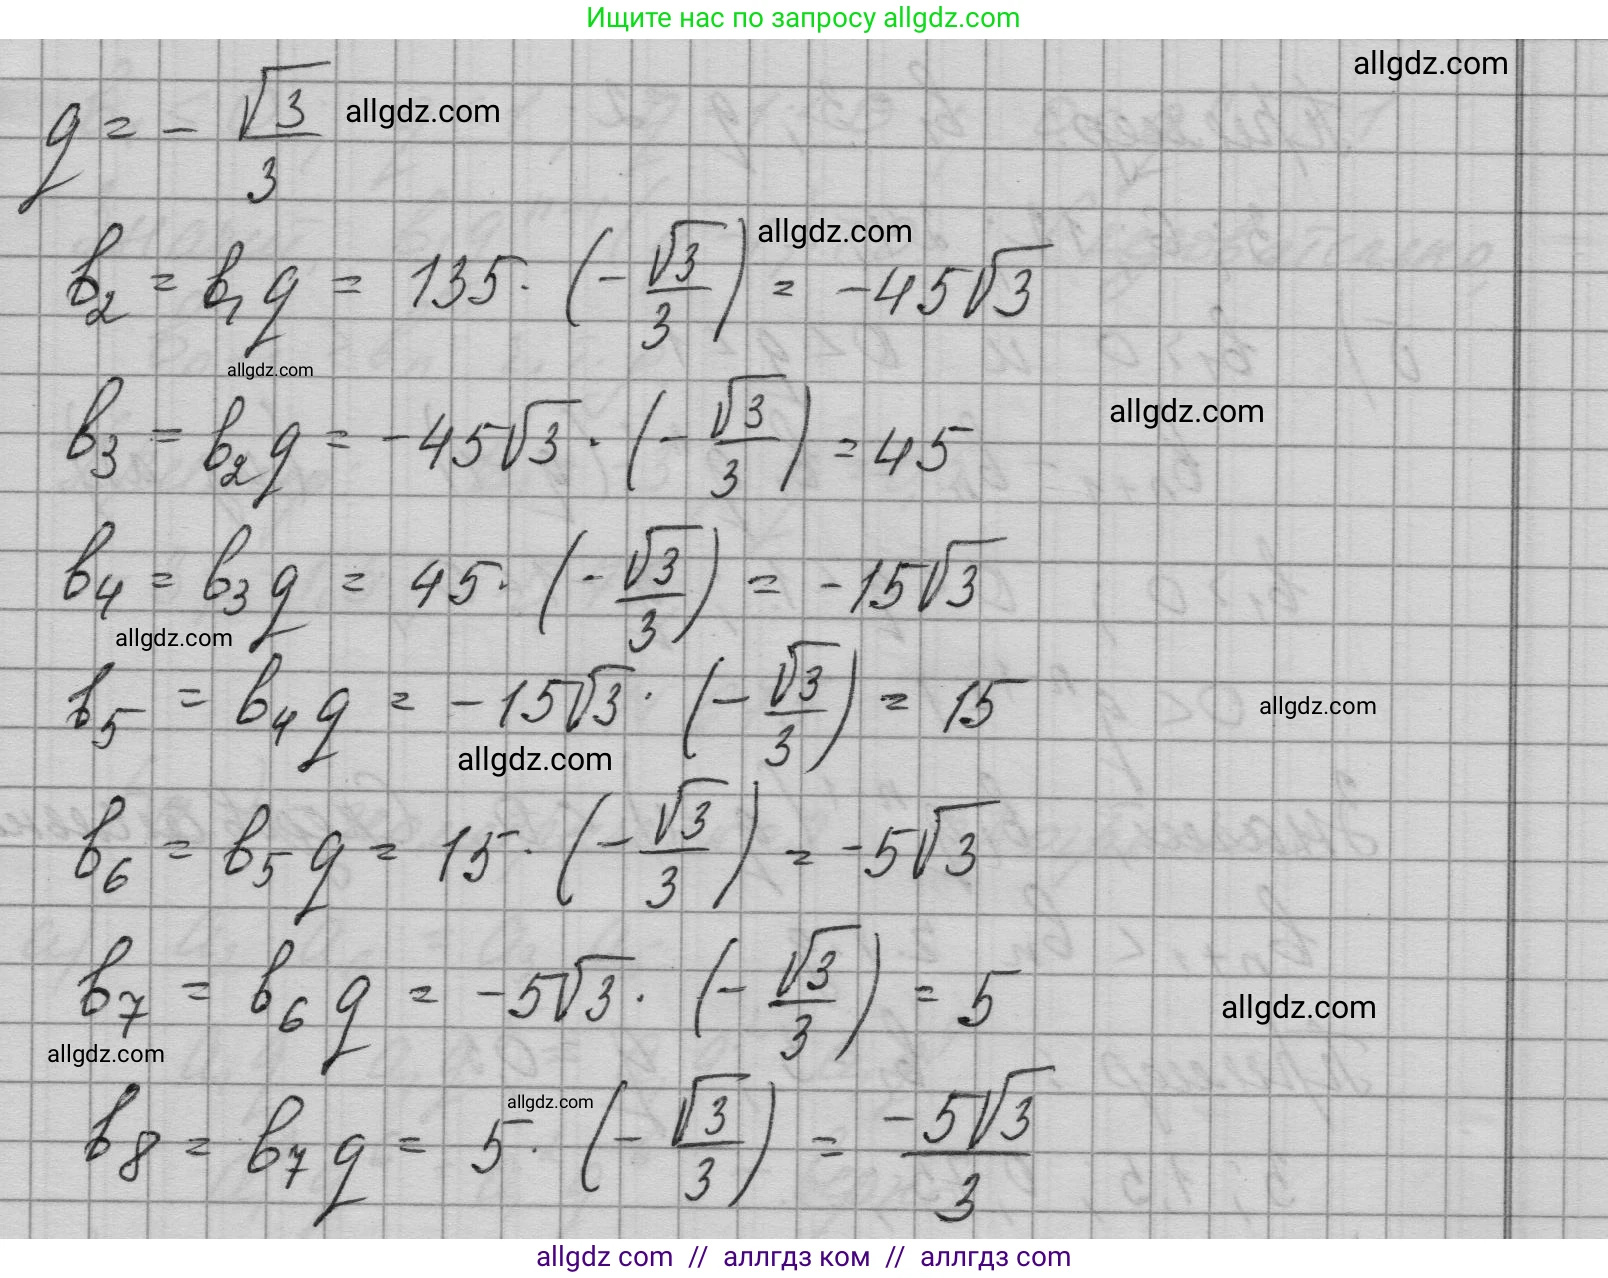 Ищите нас по запросу allgdz.com
allgdz.com
q = - √3/3 allgdz.com
b₂ = b₁q = 135 · (- √3/3) = -45√3 allgdz.com
allgdz.com
b₃ = b₂q = -45√3 · (- √3/3) = 45 allgdz.com
b₄ = b₃q = 45 · (- √3/3) = -15√3
allgdz.com
b₅ = b₄q = -15√3 · (- √3/3) = 15 allgdz.com
allgdz.com
b₆ = b₅q = 15 · (- √3/3) = -5√3
b₇ = b₆q = -5√3 · (- √3/3) = 5 allgdz.com
allgdz.com
allgdz.com
b₈ = b₇q = 5 · (- √3/3) = -5√3/3
allgdz com // аллгдз ком // аллгдз com